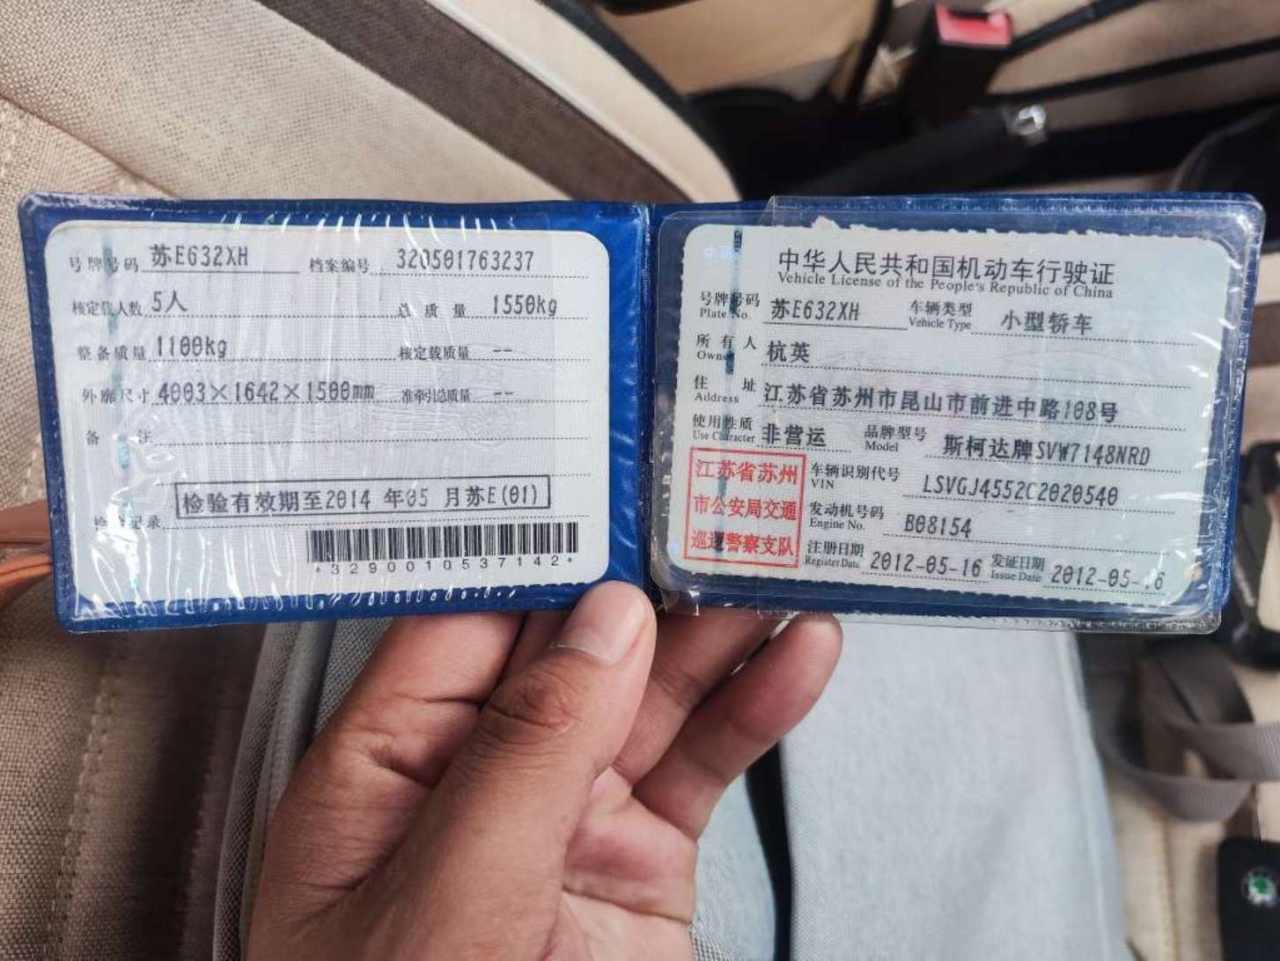 号牌号码 苏E632XH 档案编号 320501763237
核定载人数 5人 总质量 1550kg
整备质量 1100kg 核定载质量 --
外廓尺寸 4003×1642×1500mm 准牵引总质量 --
备注
检验有效期至2014 年05 月苏E(01)
检验记录
*3290010537142*
中华人民共和国机动车行驶证
Vehicle License of the People's Republic of China
号牌号码 苏E632XH 车辆类型 小型轿车
Plate No. Vehicle Type
所有人 杭英
Owner
住址 江苏省苏州市昆山市前进中路108号
Address
使用性质 非营运 品牌型号 斯柯达牌SVW7148NRD
Use Character Model
江苏省苏州
市公安局交通
巡逻警察支队
车辆识别代号 LSVGJ4552C2020540
VIN
发动机号码 B08154
Engine No.
注册日期 2012-05-16 发证日期 2012-05-16
Register Date Issue Date